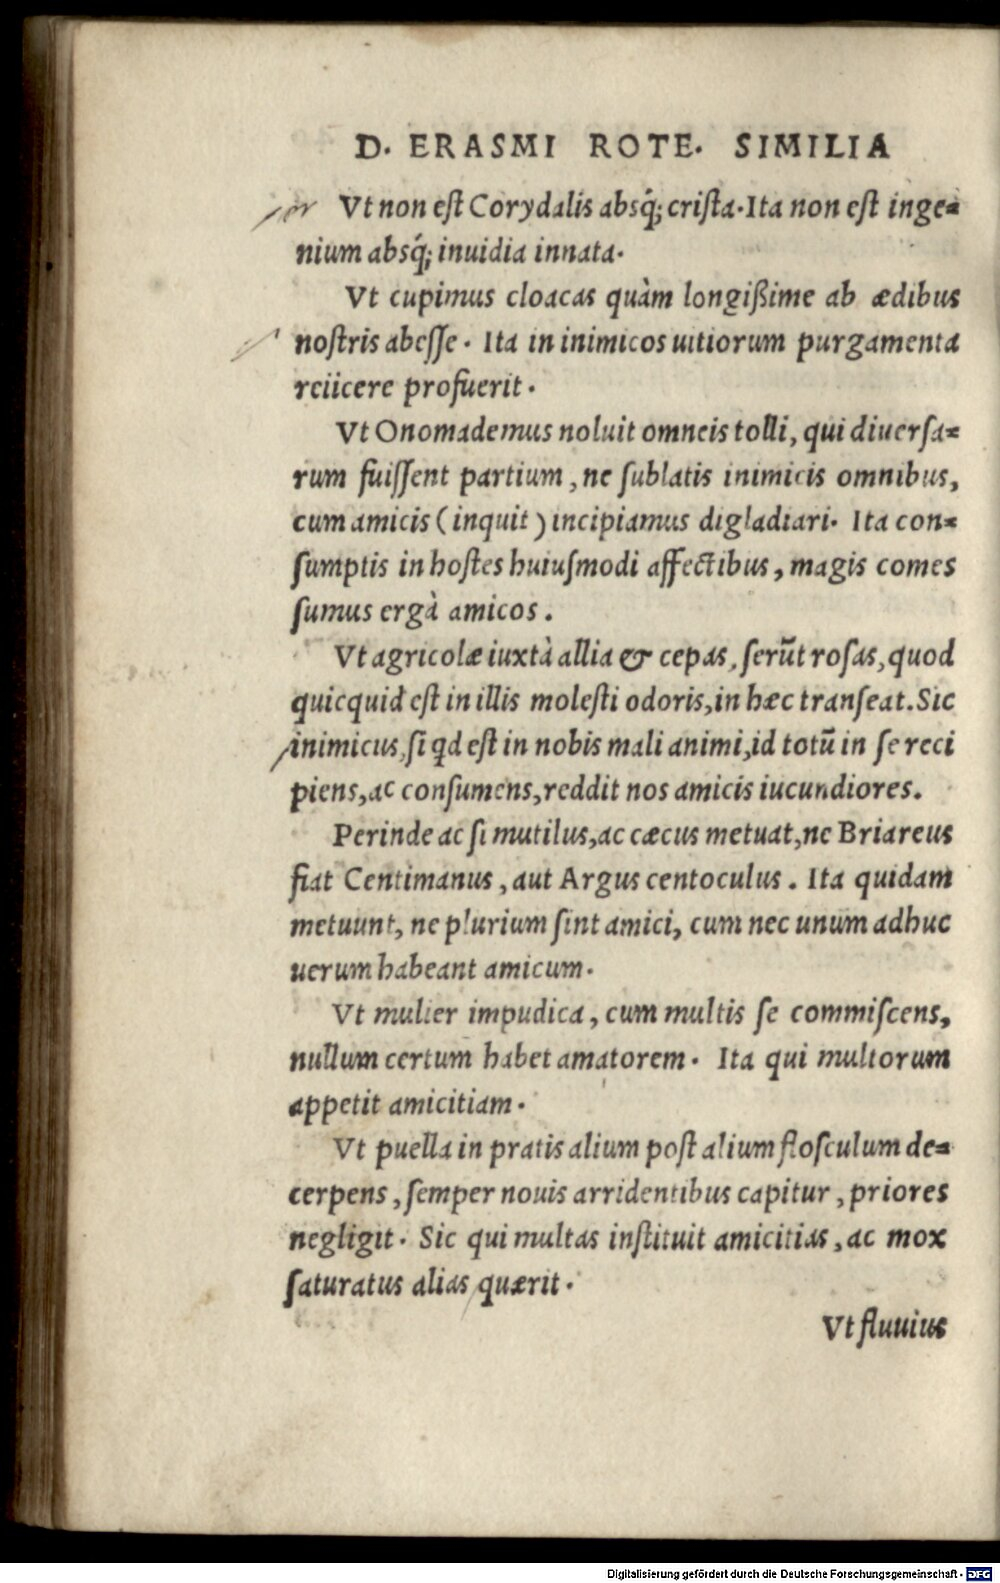 D. ERASMI ROTE. SIMILIA
Vt non eſt Corydalis absq́; criſta. Ita non eſt inge=
nium absq́; inuidia innata.
Vt cupimus cloacas quàm longißime ab ædibus
noſtris abeſſe. Ita in inimicos uitiorum purgamenta
reiicere profuerit.
Vt Onomademus noluit omneis tolli, qui diuerſa=
rum fuiſſent partium, ne ſublatis inimicis omnibus,
cum amicis (inquit) incipiamus digladiari. Ita con=
ſumptis in hoſtes huiuſmodi affectibus, magis comes
ſumus ergà amicos.
Vt agricolæ iuxtà allia & cepas, ſerũt roſas, quod
quicquid eſt in illis moleſti odoris, in hæc tranſeat. Sic
inimicus, ſi qd eſt in nobis mali animi, id totũ in ſe reci
piens, ac conſumens, reddit nos amicis iucundiores.
Perinde ac ſi mutilus, ac cæcus metuat, ne Briareus
fiat Centimanus, aut Argus centoculus. Ita quidam
metuunt, ne plurium ſint amici, cum nec unum adhuc
uerum habeant amicum.
Vt mulier impudica, cum multis ſe commiſcens,
nullum certum habet amatorem. Ita qui multorum
appetit amicitiam.
Vt puella in pratis alium poſt alium floſculum de=
cerpens, ſemper nouis arridentibus capitur, priores
negligit. Sic qui multas inſtituit amicitias, ac mox
ſaturatus alias quærit.
Vt fluuius
Digitalisierung gefördert durch die Deutsche Forschungsgemeinschaft - DFG